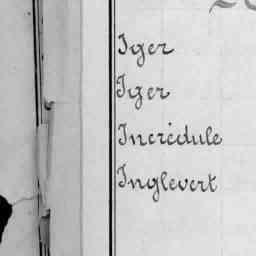 Iger
Iger
Incrédule
Inglevert